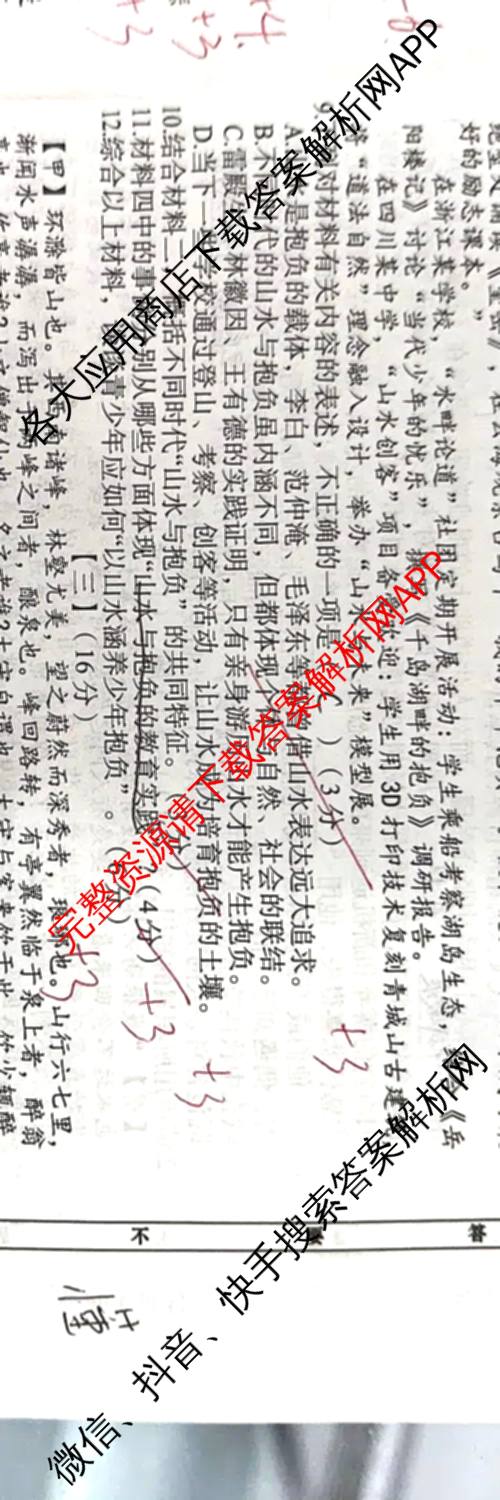 +3
+3
+4.
好的励志课本。”
在浙江某学校，“水畔论道”社团定期开展活动：学生乘船考察湖岛生态，《岳
阳楼记》讨论“当代少年的忧乐”，《千岛湖畔的抱负》调研报告。
在四川某中学，“山水创客”项目迎：学生用 3D 打印技术复刻青城山古建
“道法自然”理念融入设计，举办“山水未来”模型展。
9.对材料有关内容的表述，不正确的一项是（ ）（3 分）
A.是抱负的载体，李白、范仲淹、毛泽东等借山水表达远大追求。
B.不代的山水与抱负虽内涵不同，但都体现自然、社会的联结。
C.雷殿生、林徽因、王有德的实践证明，只有亲身游山水才能产生抱负。
D.当下一些学校通过登山、考察、创客等活动，让山水成为培育抱负的土壤。
10.结合材料二括不同时代“山水与抱负”的共同特征。
11.材料四中的事别从哪些方面体现“山水与抱负的教育实践（4 分）
12.综合以上材料，青少年应如何“以山水涵养少年抱负”。
+3
+3
+3
+3
【三】（16 分）
【甲】 环滁皆山也。其诸峰，林壑尤美，望之蔚然而深秀者，琅琊也。山行六七里，
渐闻水声潺潺，而泻出于峰之间者，酿泉也。峰回路转，有亭翼然临于泉上者，醉翁
不
答
各大应用商店下载答案解析网APP
完整资源请下载答案解析网APP
微信、抖音、快手搜索答案解析网